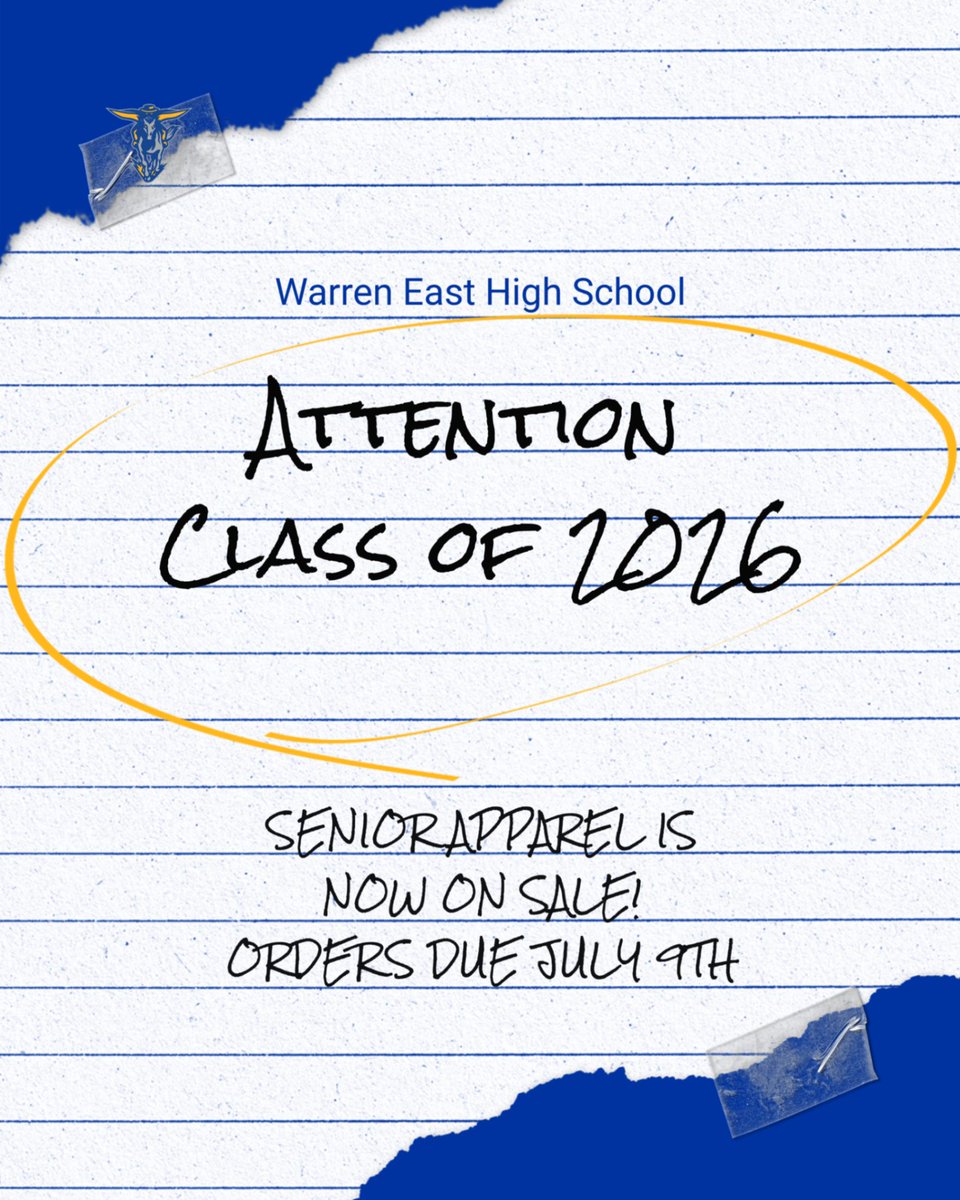 Warren East High School
Attention
Class of 2026
SENIOR APPAREL IS
NOW ON SALE!
ORDERS DUE JULY 9TH